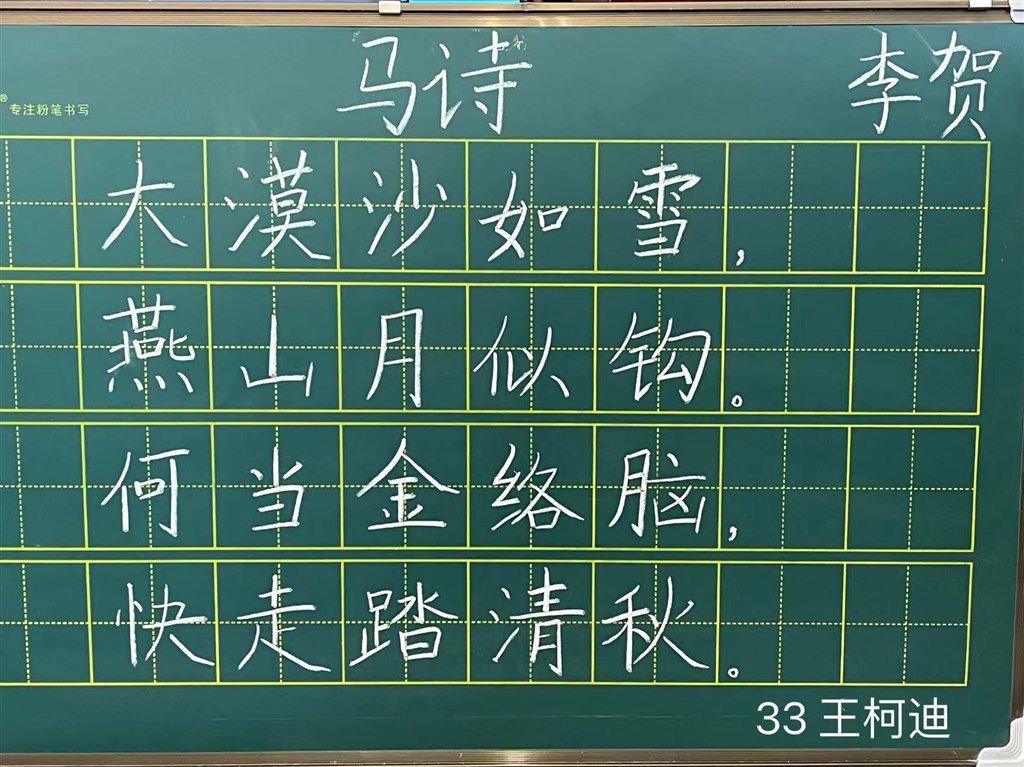 马诗 李贺
®专注粉笔书写
大漠沙如雪,
燕山月似钩。
何当金络脑,
快走踏清秋。
33 王柯迪